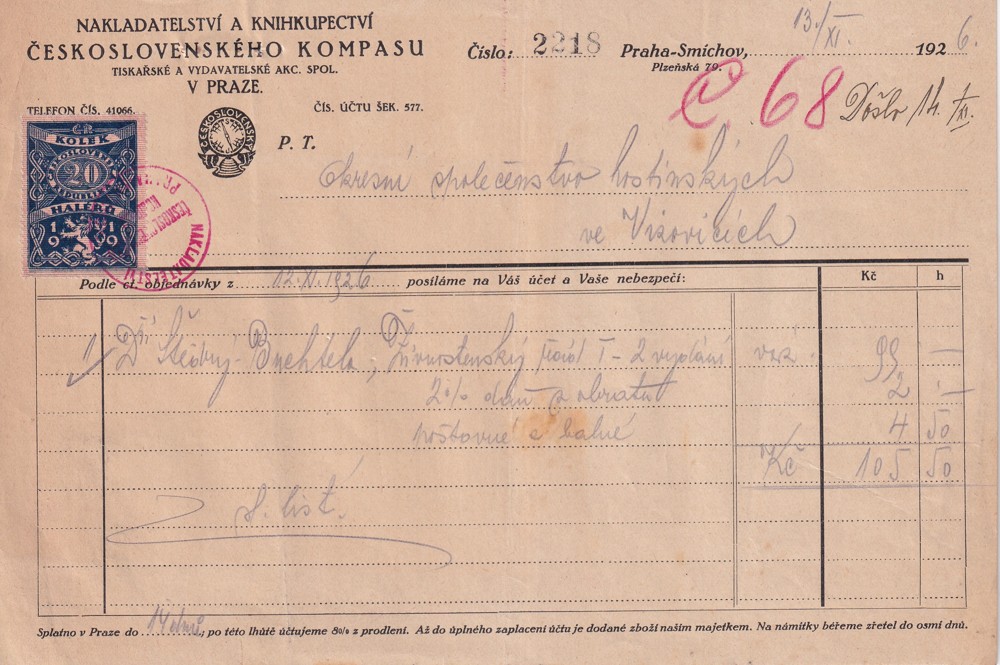 NAKLADATELSTVÍ A KNIHKUPECTVÍ
ČESKOSLOVENSKÉHO KOMPASU
TISKAŘSKÉ A VYDAVATELSKÉ AKC. SPOL.
V PRAZE.
TELEFON ČÍS. 41066.
ČÍS. ÚČTU ŠEK. 577.
Číslo: 2218 Praha-Smíchov, 13./XI. 1926.
Plzeňská 79.
Č. 68 Došlo 14./XI.
KOLEK
ČESKOSLOVENSKÁ
20
REPUBLIKA
HALÉŘŮ
1919
NAKLADATELSTVÍ
ČESKOSLOVENSKÝ
P. T.
Okresní společenstvo hostinských
ve Vizovicích
Podle ct. objednávky z 12.XI.1926 posíláme na Váš účet a Vaše nebezpečí:
Kč h
1 Dr Štědrý-Buchtela, Živnostenský řád I - 2 vydání váz. 99 —
2% daň z obratu 2 —
poštovné a balné 4 50
Kč 105 50
S. list.
Splatno v Praze do 14 dnů; po této lhůtě účtujeme 8% z prodlení. Až do úplného zaplacení účtu je dodané zboží naším majetkem. Na námitky béřeme zřetel do osmi dnů.